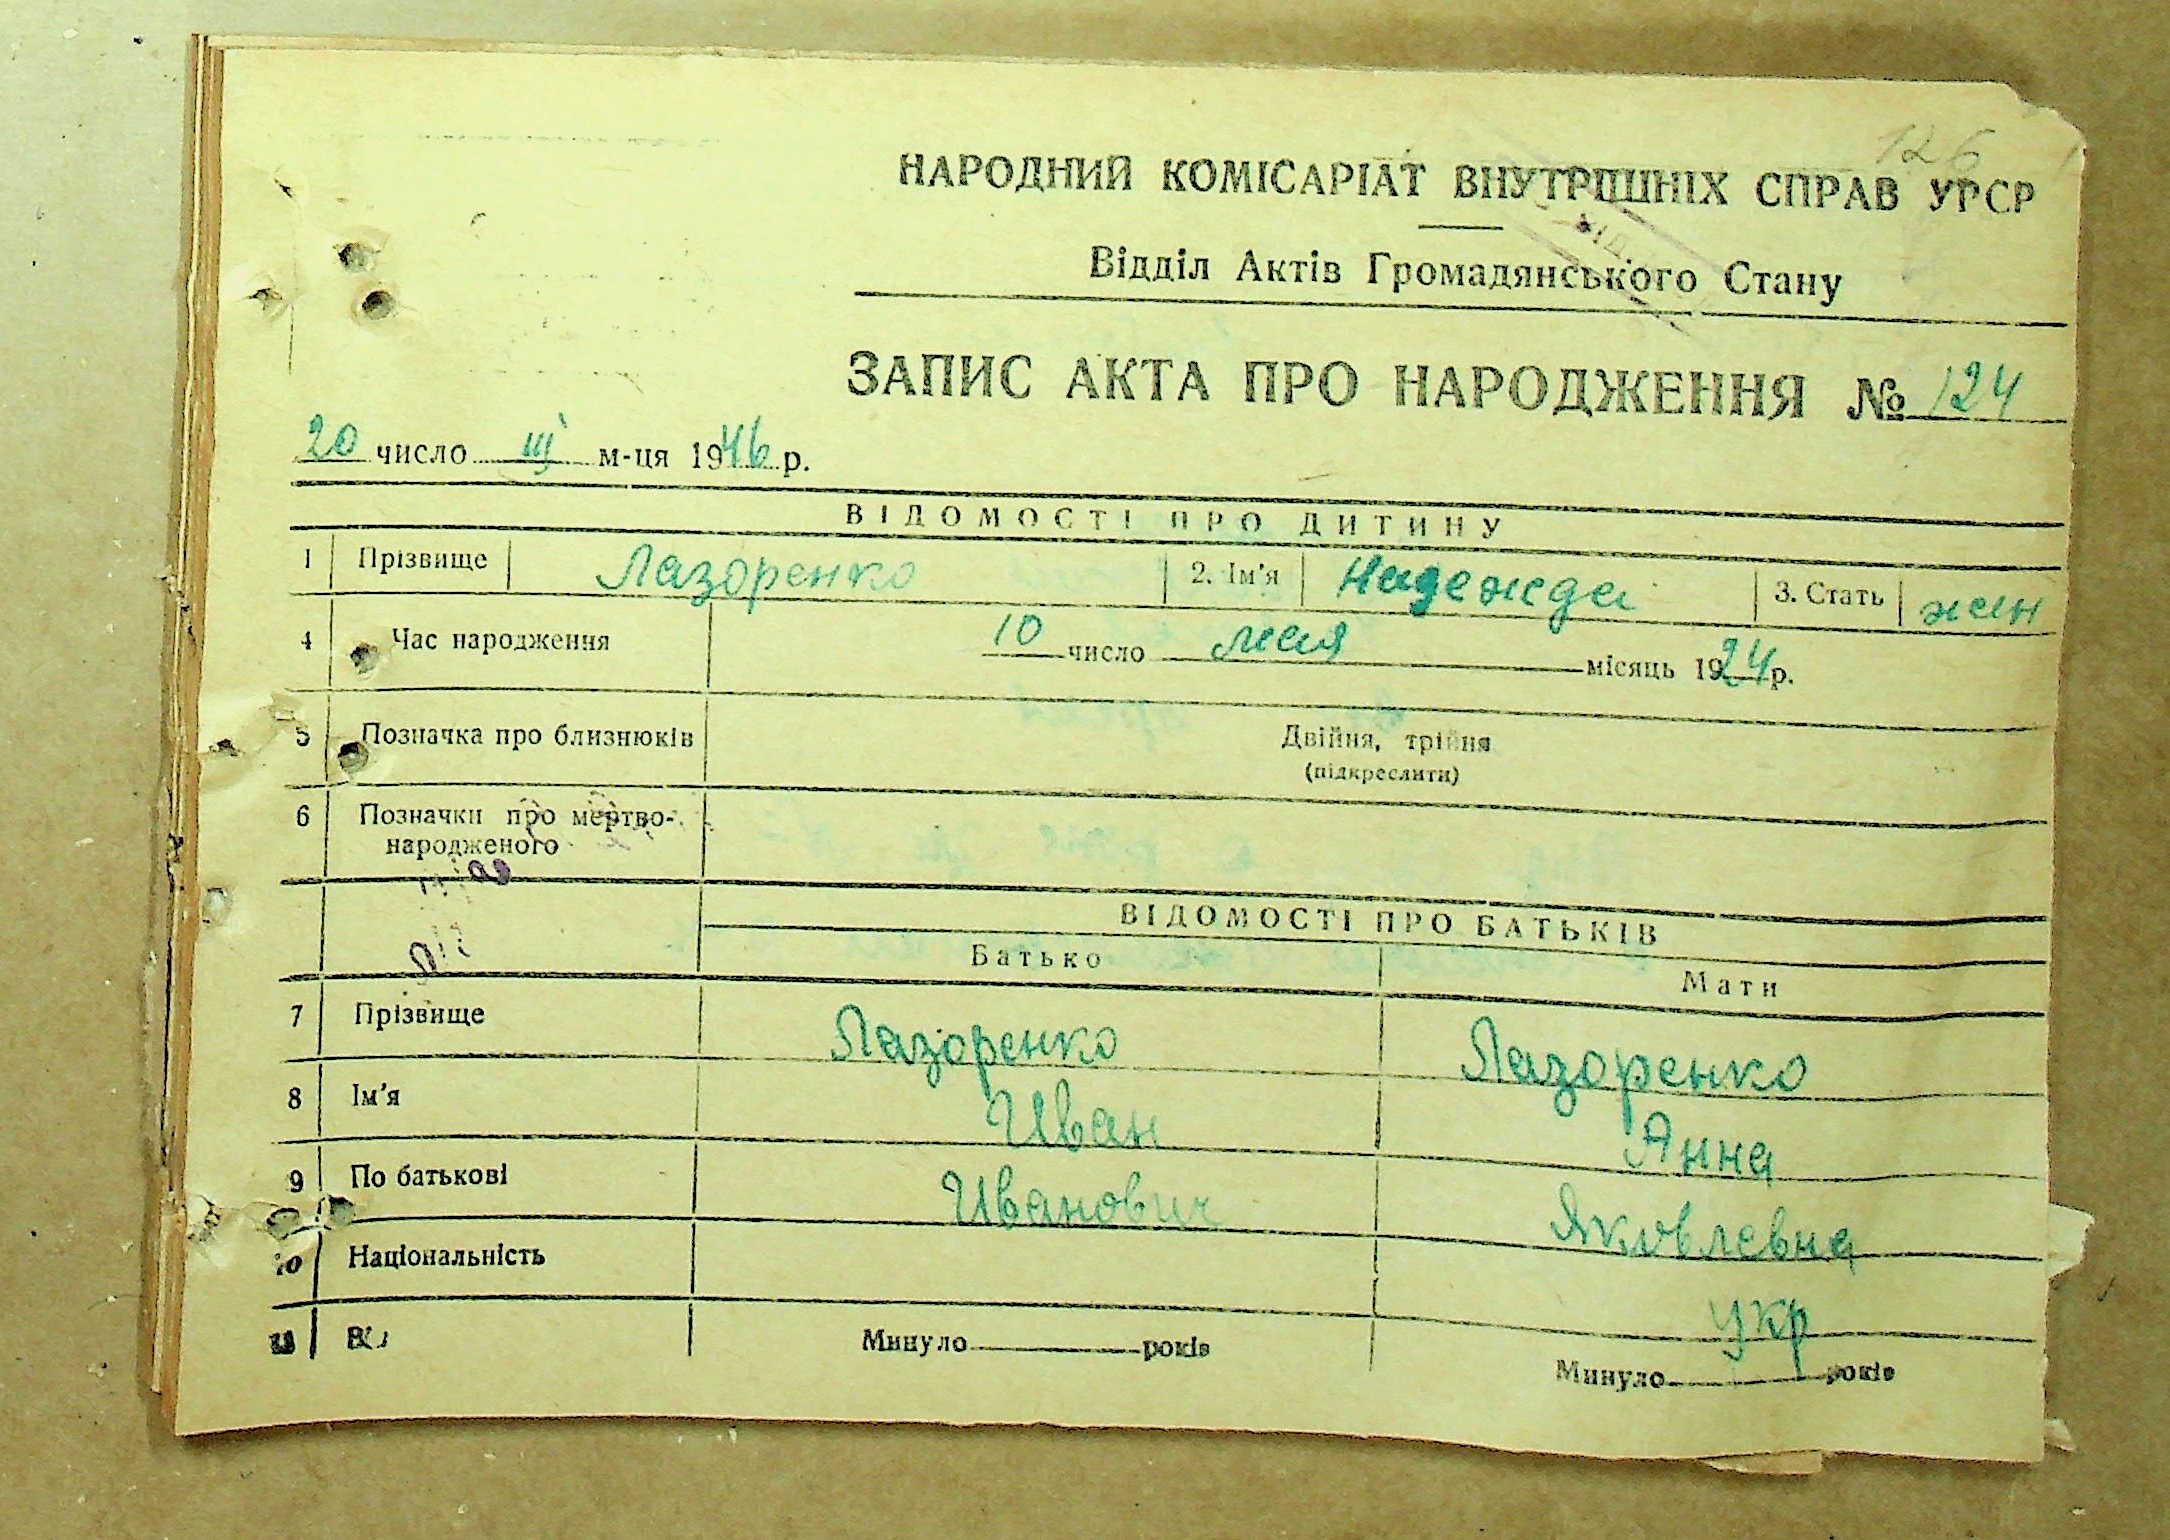 126
НАРОДНИЙ КОМІСАРІАТ ВНУТРІШНІХ СПРАВ УРСР
Відділ Актів Громадянського Стану
ЗАПИС АКТА ПРО НАРОДЖЕННЯ № 124
20 число III м-ця 1946 р.
ВІДОМОСТІ ПРО ДИТИНУ
1 Прізвище Лазоренко 2. Ім'я Надежда 3. Стать жен
4 Час народження 10 число мая місяць 1924 р.
5 Позначка про близнюків Двійня, трійня
(підкреслити)
6 Позначки про мертво-
народженого
ВІДОМОСТІ ПРО БАТЬКІВ
Батько Мати
7 Прізвище Лазоренко Лазоренко
8 Ім'я Иван Анна
9 По батькові Иванович Яковлевна
10 Національність укр
11 Минуло років Минуло років